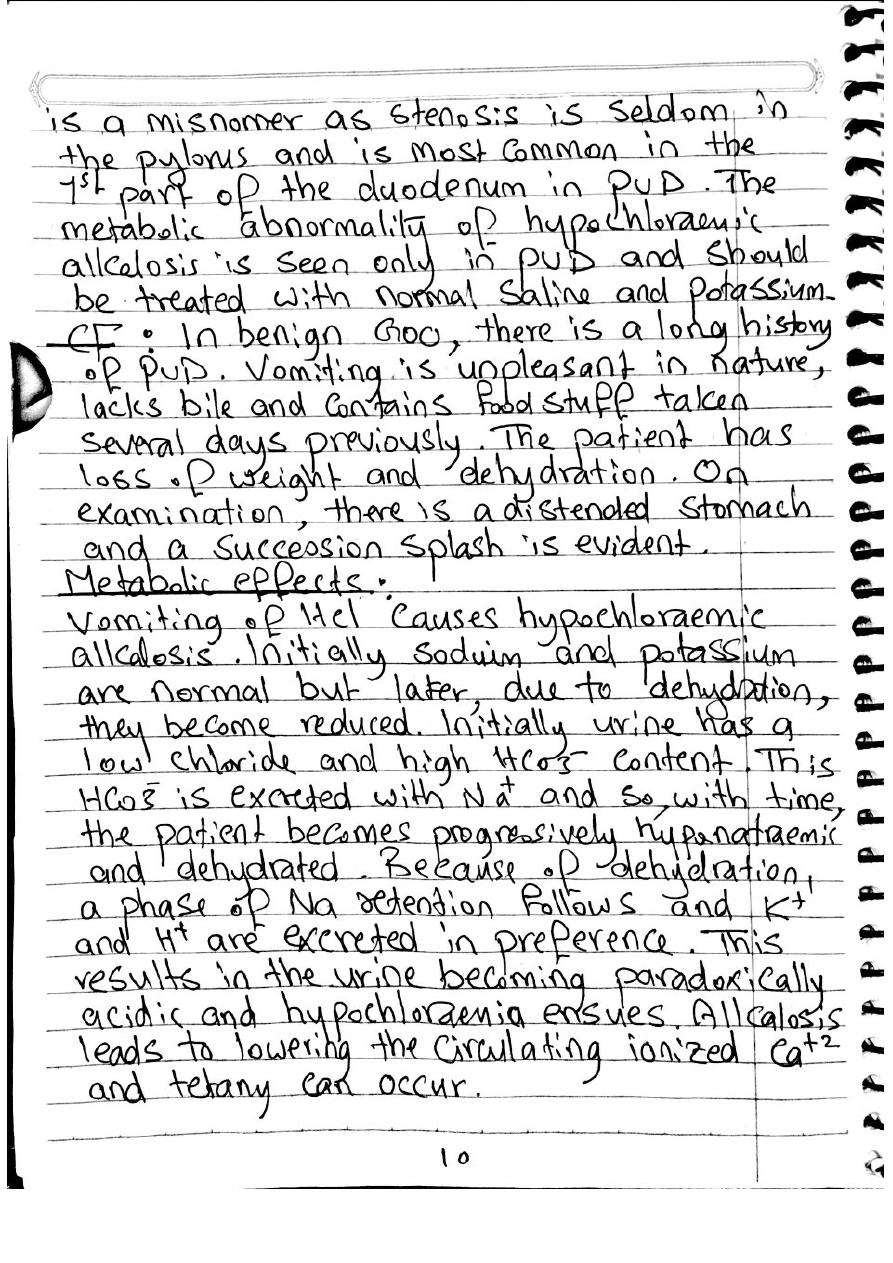 is a misnomer as stenosis is seldom in
the pylorus and is most common in the
1st part of the duodenum in PUD. The
metabolic abnormality of hypochloraemic
alkalosis is seen only in PUD and should
be treated with normal saline and potassium.
CF: In benign GOO, there is a long history
of PUD. Vomiting is unpleasant in nature,
lacks bile and contains food stuff taken
several days previously. The patient has
loss of weight and dehydration. On
examination, there is a distended stomach
and a succession splash is evident.
Metabolic effects:
Vomiting of HCl causes hypochloraemic
alkalosis. Initially soduim and potassium
are normal but later, due to dehydration,
they become reduced. Initially urine has a
low chloride and high HCO3- content. This
HCO3- is excreted with Na+ and so, with time,
the patient becomes progressively hyponatraemic
and dehydrated. Because of dehydration,
a phase of Na retention follows and K+
and H+ are excreted in preference. This
results in the urine becoming paradoxically
acidic and hypochloraemia ensues. Alkalosis
leads to lowering the circulating ionized Ca+2
and tetany can occur.
10